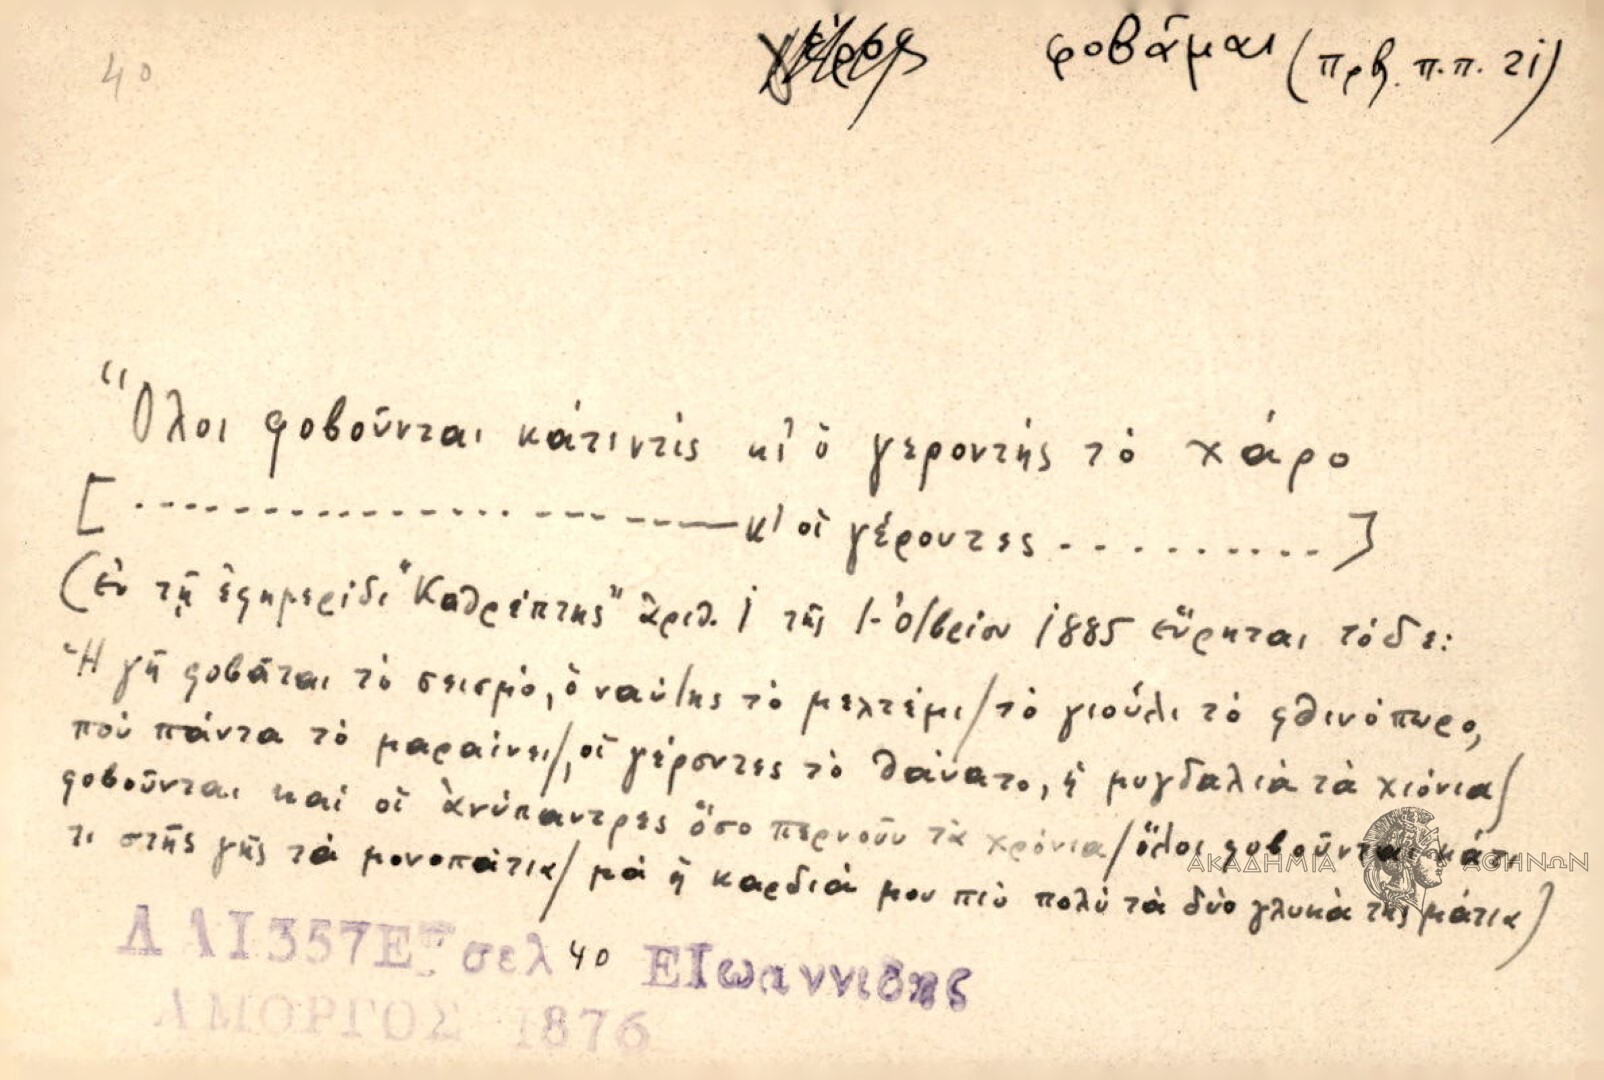 40
γέρος φοβᾶμαι (πρβ. π.π. τί)
Ὅλοι φοβοῦνται κάτιντίς κι' ὁ γεροντής τὸ χάρο
[ . . . . . . . . . . . . . . . . . . . . . . . κ' οἱ γέροντες . . . . . . . . . . ]
(ἐν τῇ ἐφημερίδι "Καθρέπτης" ἀριθ. 1 τῆς 1-Ὀ/βρίου 1885 εὕρηται τόδε:
Ἡ γῆ φοβᾶται τὸ σεισμό, ὁ ναύ/ης τὸ μελτέμι/ τὸ γιούλι τὸ φθινόπωρο,
ποὺ πάντα τὸ μαραίνει/, οἱ γέροντες τὸ θάνατο, ἡ μυγδαλιὰ τὰ χιόνια/
φοβοῦνται καὶ οἱ ἀνύπαντρες ὅσο περνοῦν τὰ χρόνια/ ὅλοι φοβοῦνται κάτ-
τι στῆς γῆς τὰ μονοπάτια/ μὰ ἡ καρδιά μου πιὸ πολὺ τὰ δύο γλυκὰ της μάτια)
ΑΚΑΔΗΜΙΑ ΑΘΗΝΩΝ
ΛΛΙ357ΕΤ σελ 40 ΕΙωαννιδης
ΑΜΟΡΓΟΣ 1876